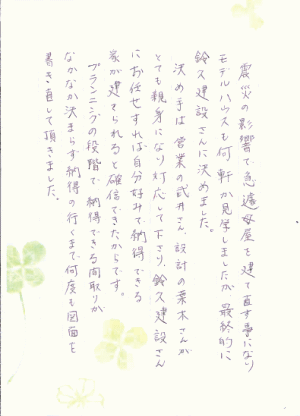 震災の影響で急遽母屋を建て直す事になり
モデルハウスも何軒か見学しましたが、最終的に
鈴久建設さんに決めました。
決め手は営業の武井さん、設計の葉木さんが
とても親身になり対応して下さり、鈴久建設さん
にお任せすれば自分好みで納得できる
家が建てられると確信できたからです。
プランニングの段階で納得できる間取りが
なかなか決まらず納得の行くまで何度も図面を
書き直して頂きました。